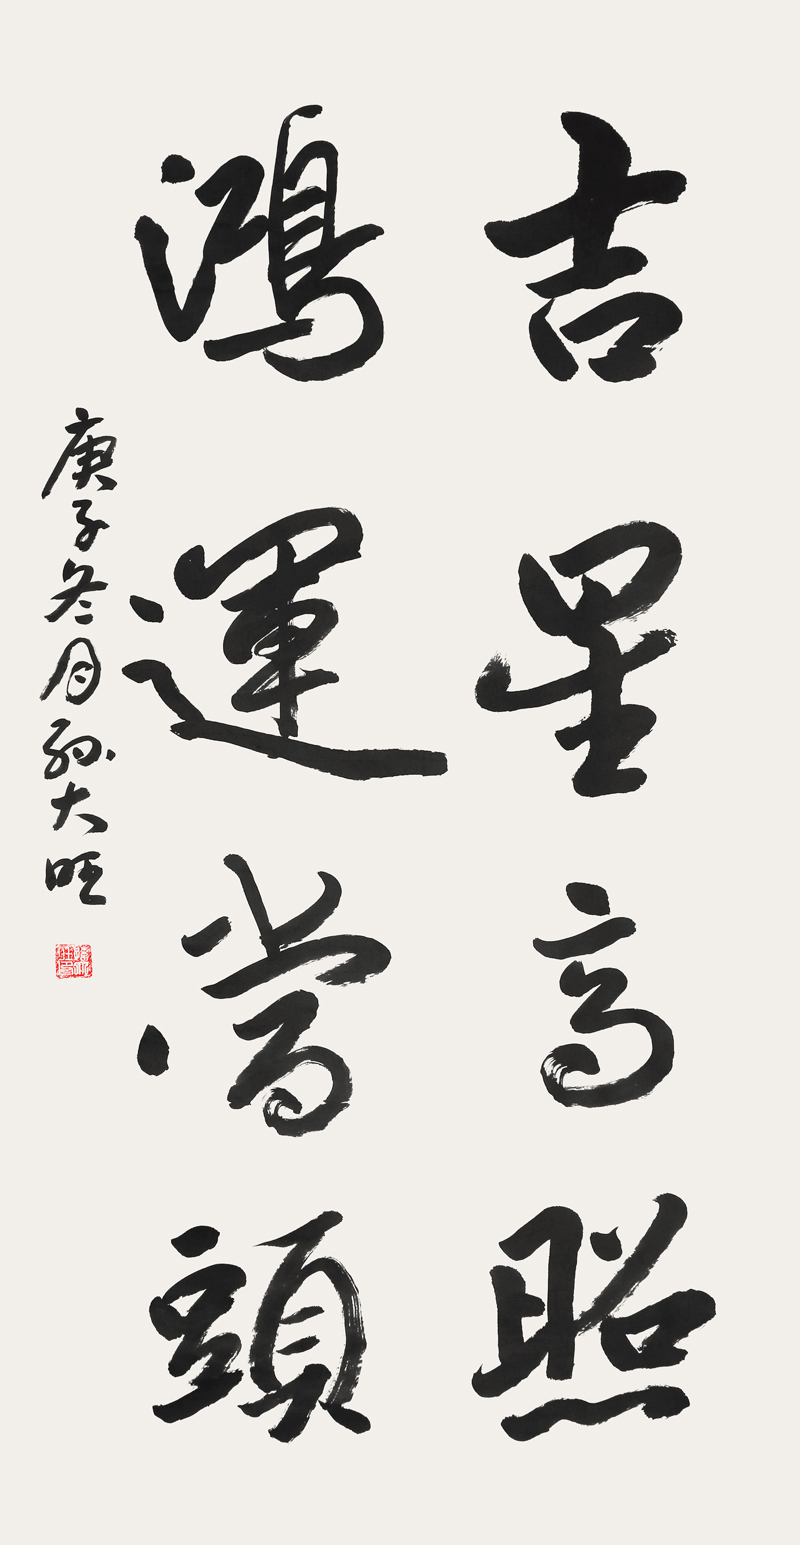 吉星高照
鴻運當頭
庚子冬月孙大旺